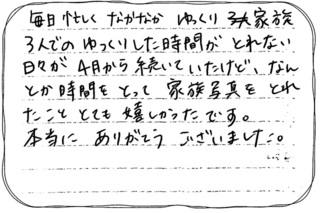 毎日忙しく なかなか ゆっくり 家族
3人での ゆっくりした時間が とれない
日々が 4月から続いていたけど、なん
とか時間を とって 家族写真を とれ
たこと とても 嬉しかったです。
本当に ありがとう ございました。